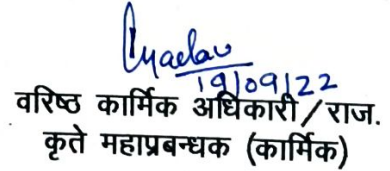 19/09/22
वरिष्ठ कार्मिक अधिकारी/राज.
कृते महाप्रबन्धक (कार्मिक)